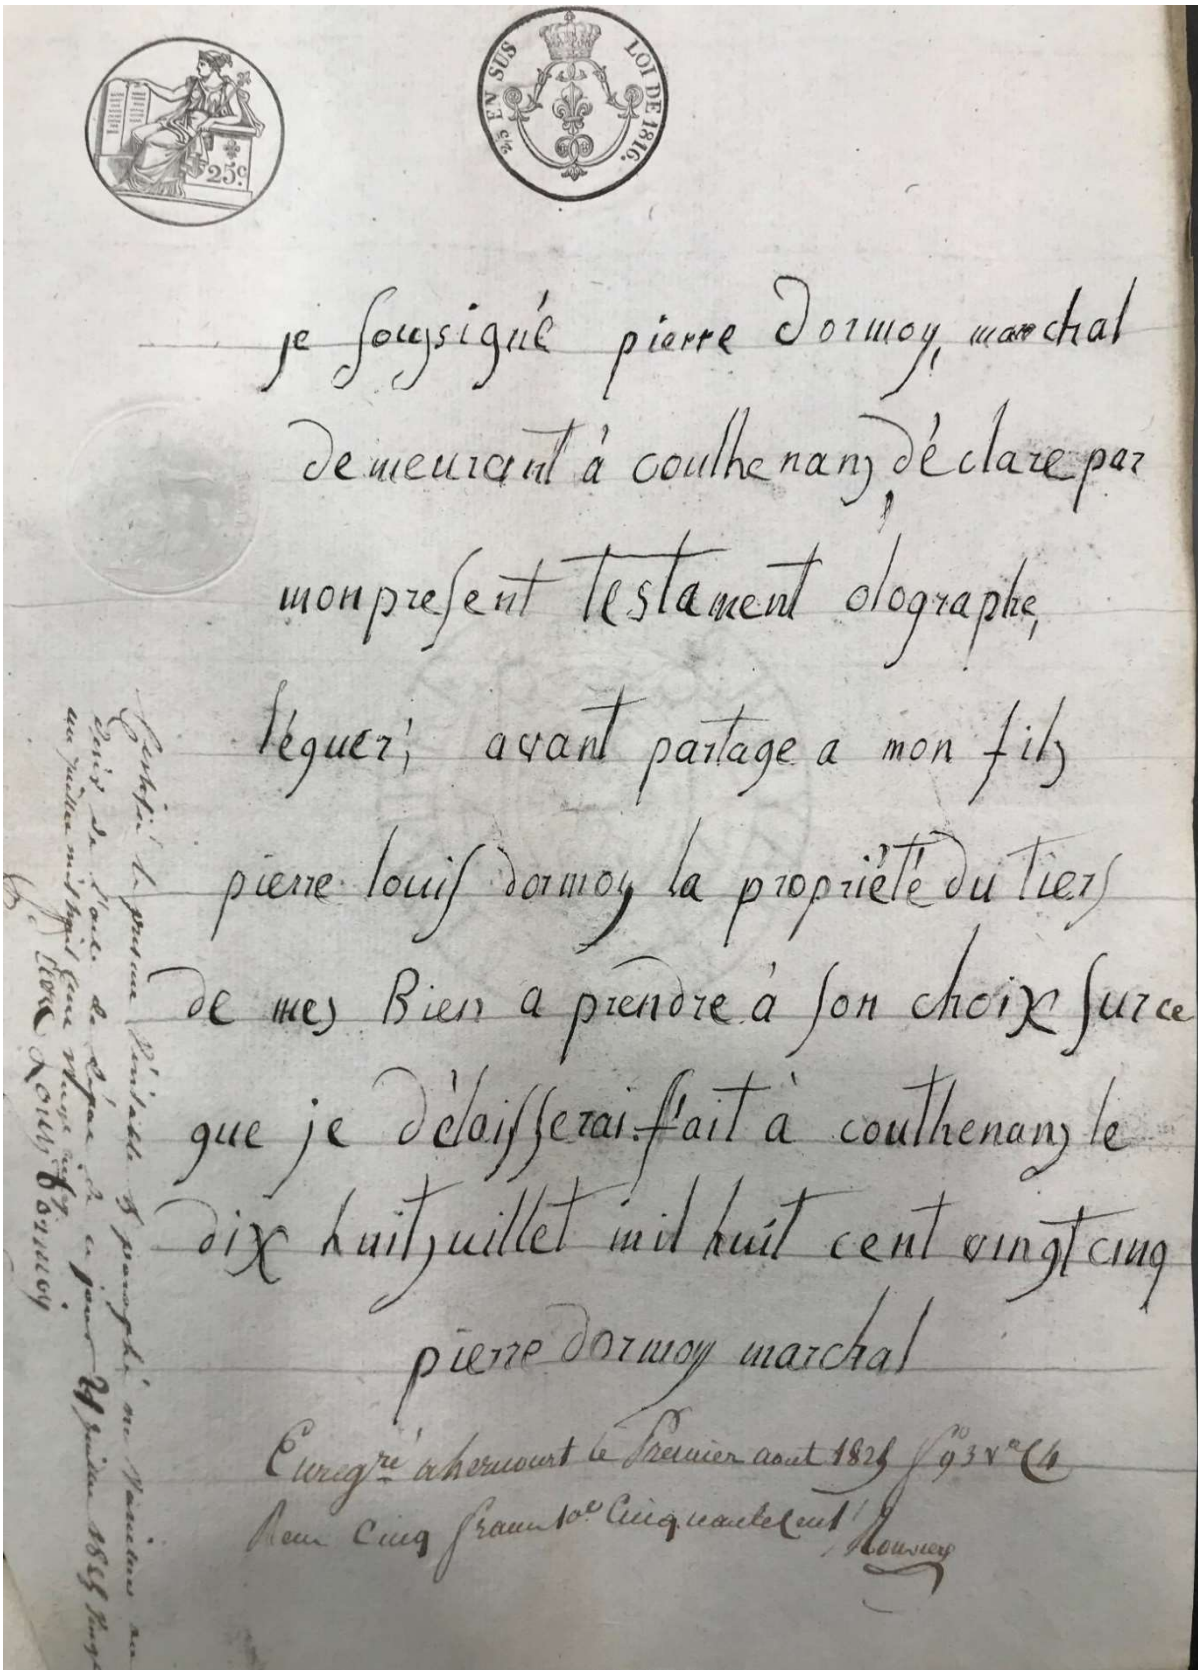 25.c
2/5 EN SUS LOI DE 1816.
je sousigné pierre dormoy, marchal
demeurant à couthenans, déclare par
mon present testament olographe,
léguer, avant partage a mon fils
pierre louis dormoy la propriété du tiers
de mes Bien a prendre à son choix sur ce
que je délaisserai. fait à couthenans le
dix huit juillet mil huit cent vingt cinq
pierre dormoy marchal
Enregré a hericourt le Premier aout 1825 fo 93 vo C 4
Recu Cinq francs 10e Cinquante Cent
Certifié la présente véritable & paraphé ne Varietur au
désir de l'acte de dépot de ce jour 21 juillet 1825 vingt
un juillet mil huit cent
Pierre Louis Dormoy